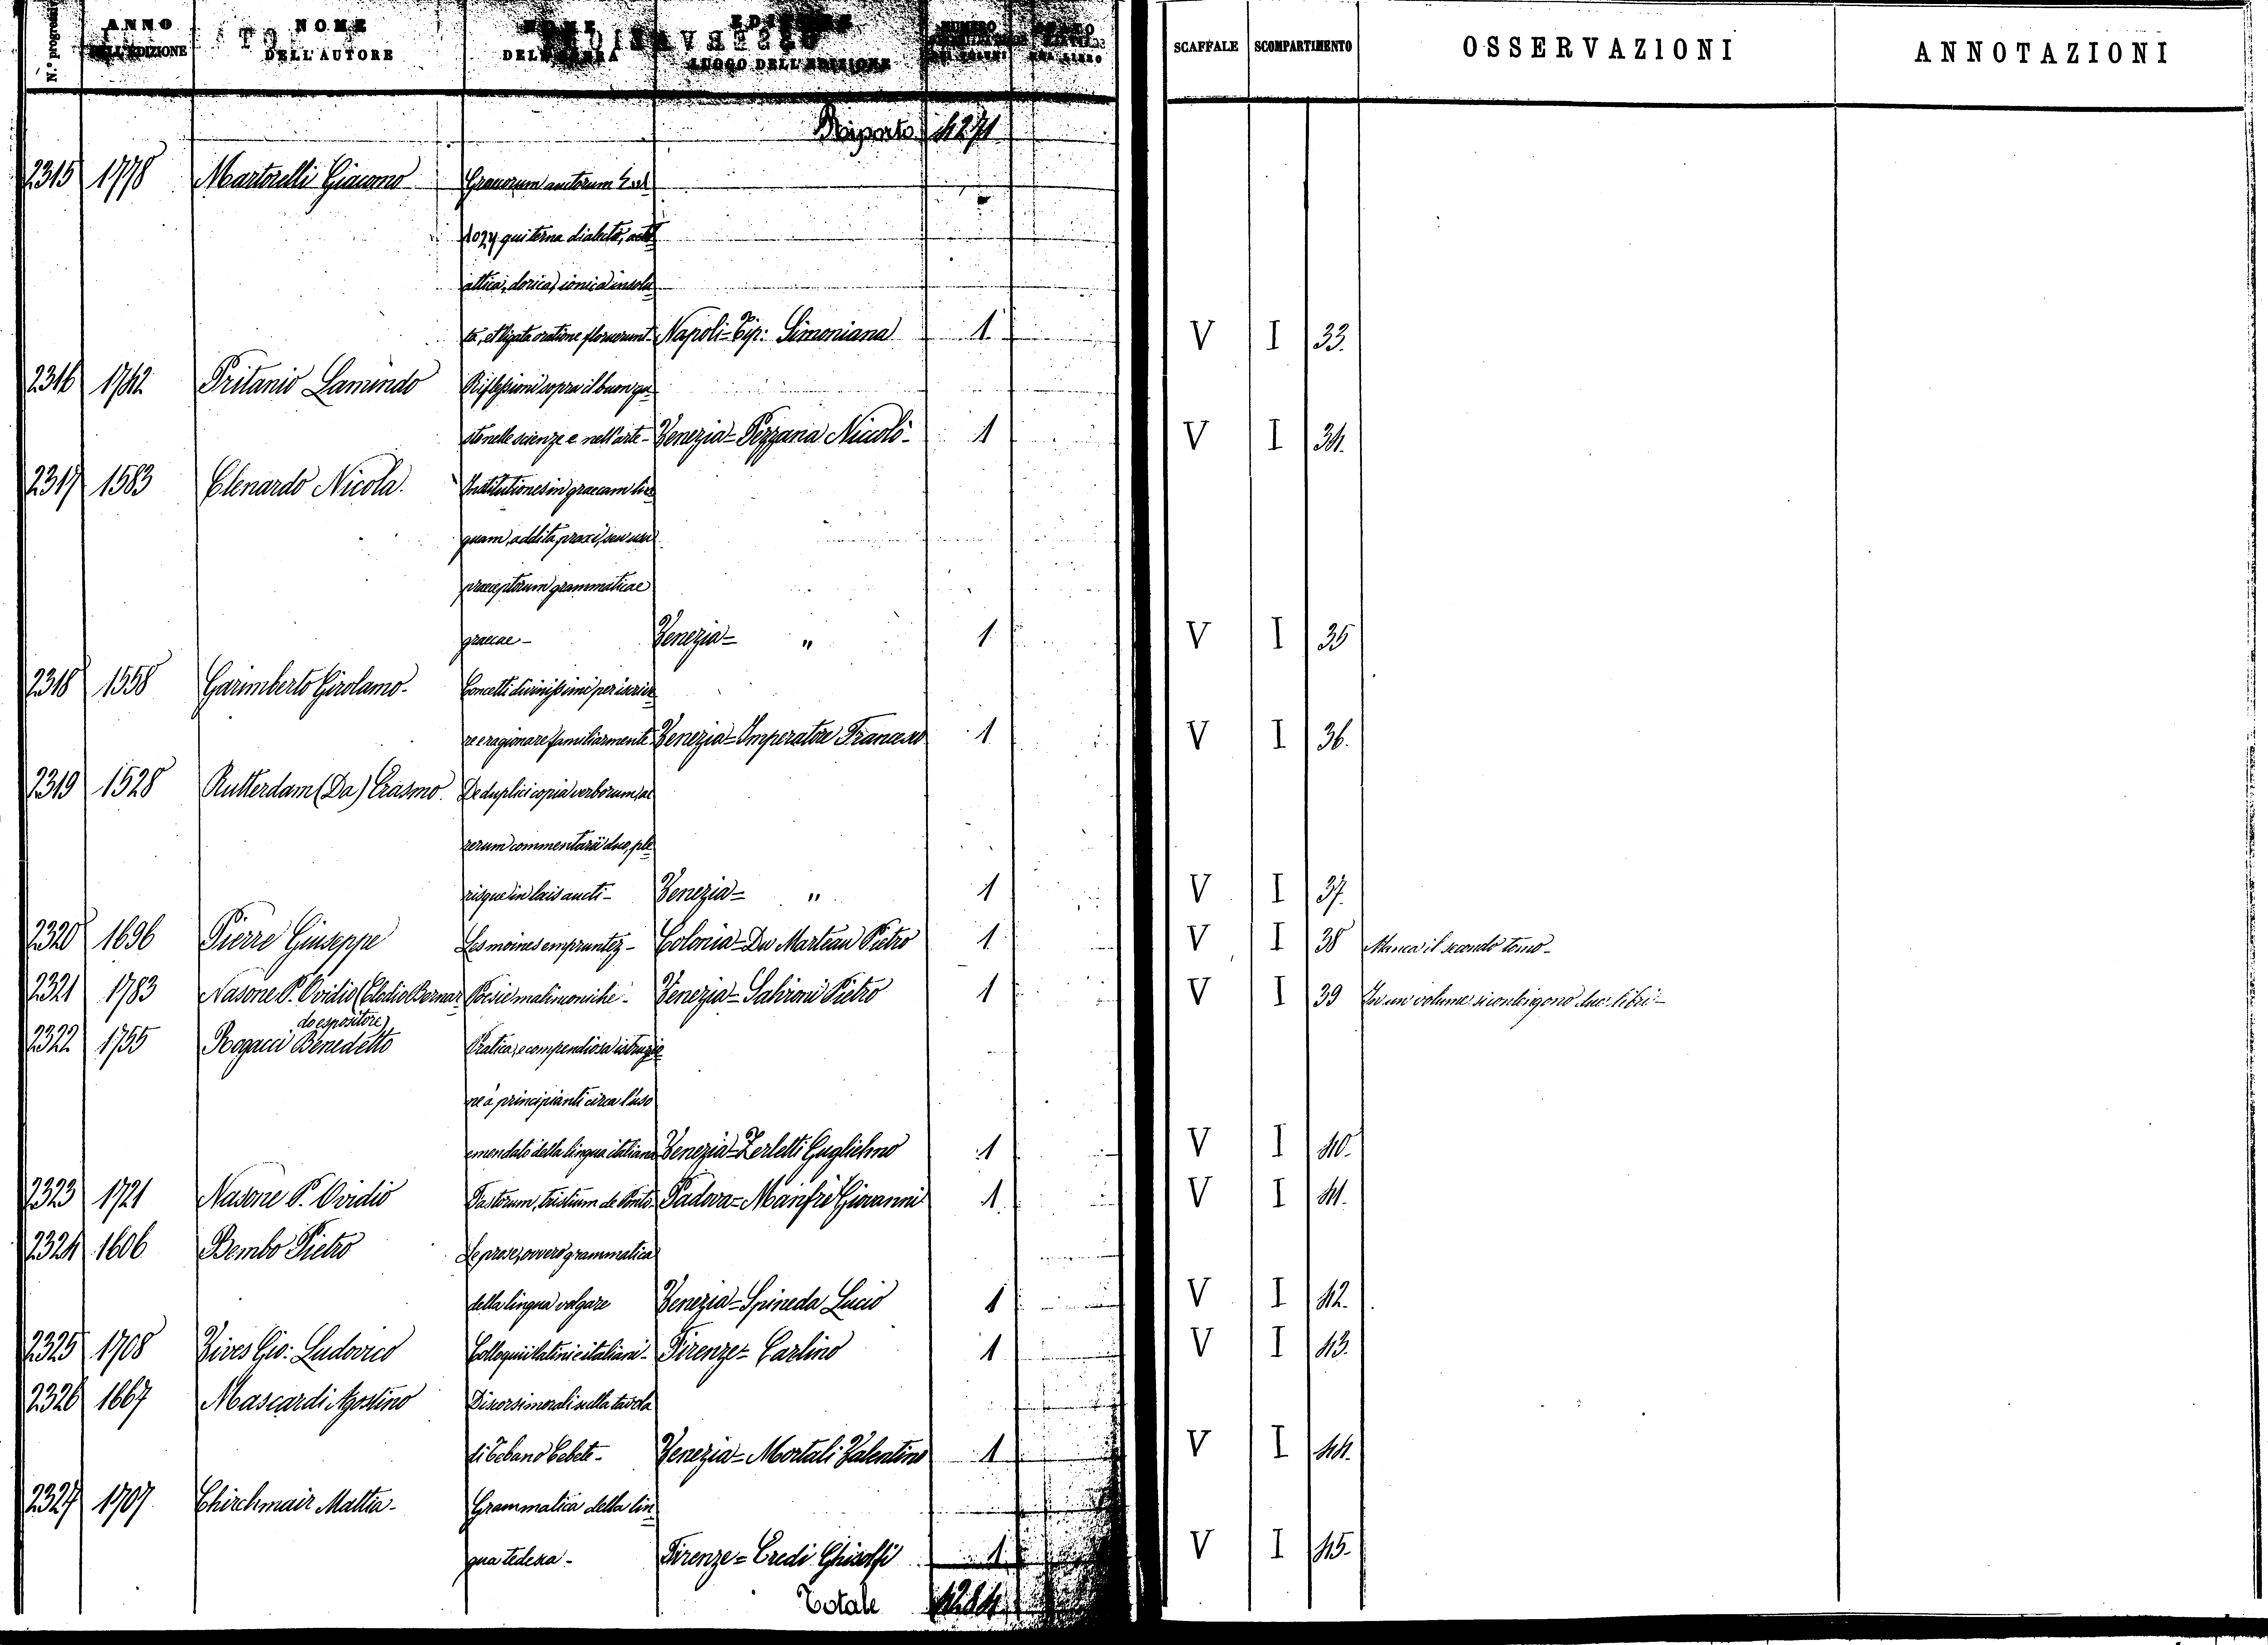 N.° progressivo ANNO DELL'EDIZIONE NOME DELL'AUTORE NOME DELL'OPERA EDIZIONE LUOGO DELL'EDIZIONE NUMERO SCAFFALE SCOMPARTIMENTO OSSERVAZIONI ANNOTAZIONI
Riporto 4271
2315 1778 Martorelli Giacomo Graecorum auctorum
qui terna dialecto,
attica, dorica, ionica in solu
ta, et ligata oratione floruerunt- Napoli= Tip: Simoniana 1. V I 33.
2316 1742 Pritanio Lamindo Riflessioni sopra il buon gu
sto nelle scienze e nell'arte- Venezia= Pezzana Niccolò- 1 V I 34.
2317 1583 Clenardo Nicola. Institutiones in graecam lin
guam, addita praxi, seu usu
praeceptorum grammaticae
graecae- Venezia= " 1. V I 35
2318 1558 Garimberto Girolamo- Concetti divinissimi per iscrive
re e ragionare familiarmente- Venezia= Imperatore Francesco 1 V I 36.
2319 1528 Rutterdam (Da) Erasmo. De duplici copia verborum, ac
rerum commentarii duo, ple
risque in locis aucti- Venezia= " 1 V I 37.
2320 1696 Pierre Giuseppe Les moines empruntez- Colonia= Du Marteau Pietro 1 V I 38 Manca il secondo tomo-
2321 1783 Nasone P. Ovidio (Clodio Bernar Poesie malinconiche- Venezia= Salvioni Pietro 1 V I 39 In un volume si contengono due libri-
do espositore)
2322 1755 Rogacci Benedetto Pratica, e compendiosa istruzio
ne a' principianti circa l'uso
emendato della lingua italiana Venezia= Zerletti Guglielmo 1 V I 40.
2323 1721 Nasone P. Ovidio Fastorum, tristium de Ponto- Padova= Manfrè Giovanni 1. V I 41.
2324 1606 Bembo Pietro Le prose, ovvero grammatica
della lingua volgare Venezia= Spineda Lucio 1 V I 42.
2325 1708 Vives Gio: Ludovico Colloqui latini e italiani- Firenze= Carlino 1 V I 43.
2326 1667 Mascardi Agostino Discorsi morali sulla tavola
di Tebano Cebete- Venezia= Mortali Valentino 1 V I 44.
2327 1707 Chirchmair Mattia- Grammatica della lin
gua tedesca- Firenze= Eredi Ghisolfi 1 V I 45.
Totale 4284